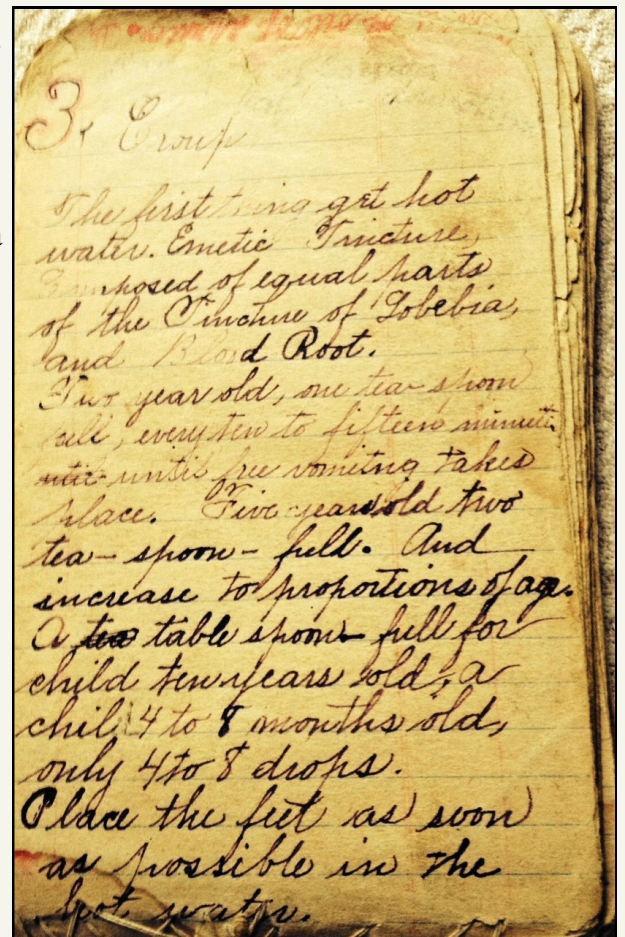 3. Croup
The first thing get hot
water. Emetic Tincture,
Composed of equal parts
of the Tincture of Lobebia,
and Blood Root.
Two year old, one tea-spoon
full, every ten to fifteen minuets
until free vomitng takes
place. Five years old two
tea-spoon-full. And
increase to proportions of age.
A tea table spoon-full for
child ten years old, a
chil 4 to 8 months old,
only 4 to 8 drops.
Place the feet as soon
as possible in the
hot water.